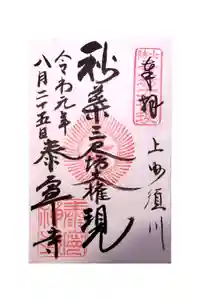 奉拝
上曲須川
秋葉三尺坊大権現
令和元年
八月二十五日
泰寧寺